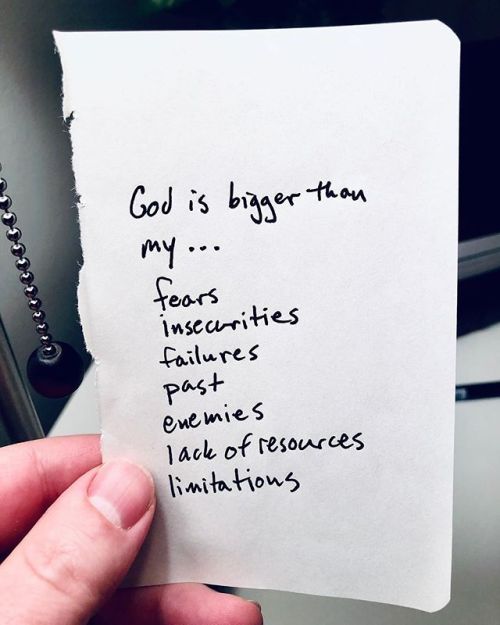 God is bigger than
my...
fears
insecurities
failures
past
enemies
lack of resources
limitations